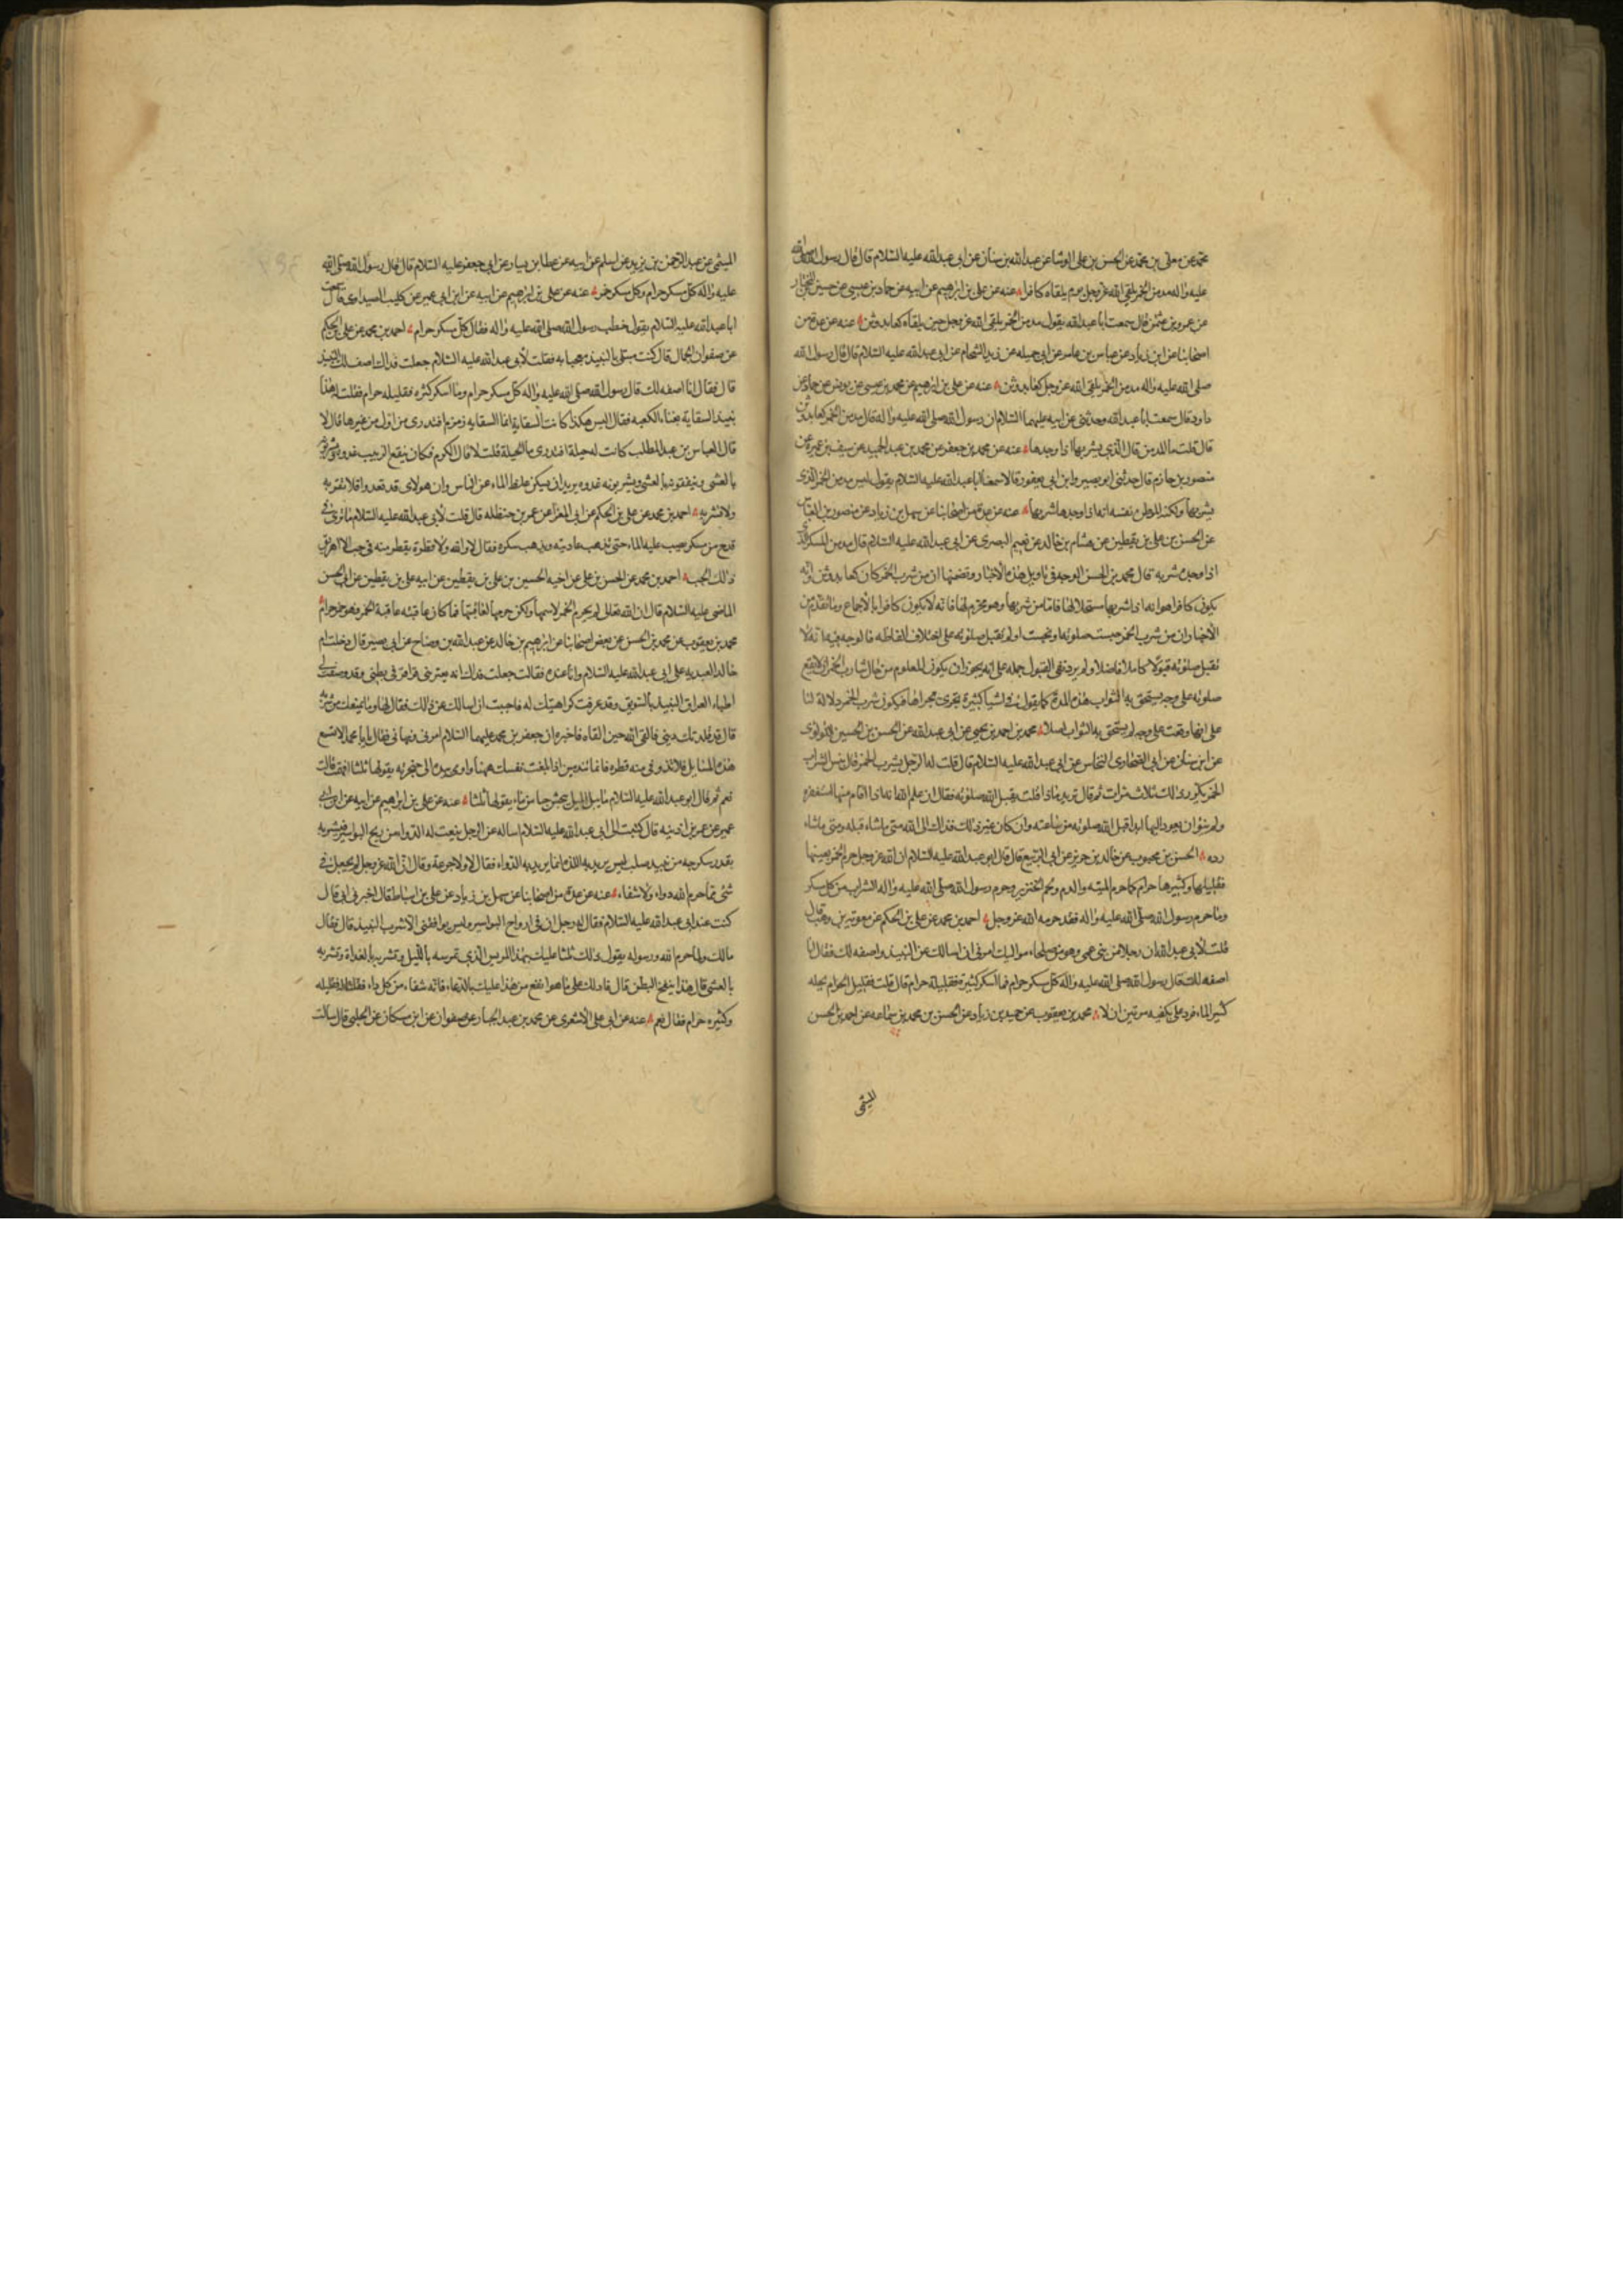 محمد عن معلى بن محمد عن الحسن بن علي الوشا عن عبد الله بن سنان عن ابي عبد الله عليه السلام قال قال رسول الله صلى الله
عليه واله مدمن الخمر يلقى الله عز وجل يوم يلقاه كافرا عنه عن علي بن ابرهيم عن ابيه عن حماد بن عيسى عن حسين بن المختار
عن عمرو بن عثمن قال سمعت ابا عبد الله يقول مدمن الخمر يلقى الله عز وجل حين يلقاه كعابد وثن عنه عن عدة من
اصحابنا عن ابن زياد عن عباس بن عامر عن ابي جميله عن زيد الشحام عن ابي عبد الله عليه السلام قال قال رسول الله
صلى الله عليه واله مدمن الخمر يلقى الله عز وجل كعابد وثن عنه عن علي بن ابرهيم عن محمد بن عيسى عن يونس عن حماد عن
داود قال سمعت ابا عبد الله وحدثني عن ابيه عليهما السلام ان رسول الله صلى الله عليه واله قال مدمن الخمر كعابد وثن
قال قلت ما المدمن قال الذي يشربها اذا وجدها عنه عن محمد بن جعفر عن محمد بن عبد الحميد عن سيف بن عميرة عن
منصور بن حازم قال حدثني ابو بصير وابن ابي يعفور قالا سمعنا ابا عبد الله عليه السلام يقول ليس مدمن الخمر الذي
يشربها ولكنه الموطن نفسه انه اذا وجدها شربها عنه عن عدة من اصحابنا عن سهل بن زياد عن منصور بن العباس
عن الحسن بن علي بن يقطين عن هشام بن خالد عن نعيم البصري عن ابي عبد الله عليه السلام قال مدمن المسكر الذي
اذا وجده شربه قال محمد بن الحسن الوجه في تاويل هذه الاخبار وتضمنها ان من شرب الخمر كان كعابد وثن وانه
يكون كافرا هو انه اذا شربها مستحلا لها فاما من شربها وهو محرم لها فانه لا يكون كافرا بالاجماع وما تقدم من
الاخبار ان من شرب الخمر حبست صلوته او نجست او لم يقبل صلوته على اختلاف الفاظه فالوجه فيها انه لا
تقبل صلوته قبولا كاملا فاضلا ولم يرد نفي القبول جمله على انه يجوز ان يكون المعلوم من حال شارب الخمر انه لا يقع
صلوته على وجه يستحق به الثواب هذه المدة كما يقول في اشيا كثيرة يجري مجراها فيكون شرب الخمر دلالة لنا
على انها وقعت على وجه لم يستحق به الثواب اصلا محمد بن احمد بن يحيى عن ابي عبد الله عن الحسن بن الحسين اللولوى
عن ابن سنان عن ابي الصحارى النخاس عن ابي عبد الله عليه السلام قال قلت له الرجل يشرب الخمر قال بئس الشراب
الخمر يكرر ذلك ثلاث مرات ثم قال تريد ماذا قلت يقبل الله صلوته فقال ان علم الله انه اذا اقام منها استغفره
ولم ينو ان يعود اليها ابدا قبل الله صلوته من ساعته وان كان غير ذلك فذاك الى الله متى ما شاء قبله ومتى ما شاء
رده الحسن بن محبوب عن خالد بن جرير عن ابي الربيع قال قال ابو عبد الله عليه السلام ان الله عز وجل حرم الخمر بعينها
فقليلها وكثيرها حرام كما حرم الميته والدم ولحم الخنزير وحرم رسول الله صلى الله عليه واله الشراب من كل مسكر
وما حرم رسول الله صلى الله عليه واله فقد حرمه الله عز وجل احمد بن محمد عن علي بن الحكم عن معويه بن وهب قال
قلت لابي عبد الله ان رجلا من بني عمي وهو من صلحاء مواليك امرني ان اسالك عن النبيذ واصفه لك فقال انا
اصفه لك قال رسول الله صلى الله عليه واله كل مسكر حرام فما اسكر كثيرة فقليله حرام قال قلت فقليل الحرام يحله
كثير الماء فرد علي بكفيه مرتين ان لا محمد بن يعقوب عن حميد بن زياد عن الحسن بن محمد بن سماعه عن احمد بن الحسن
الميثمى
الميثمى عن عبد الرحمن بن زيد عن اسلم عن ابيه عن عطا بن يسار عن ابي جعفر عليه السلام قال قال رسول الله صلى الله
عليه واله كل مسكر حرام وكل مسكر خمر عنه عن علي بن ابرهيم عن ابيه عن ابن ابي عمير عن كليب الصيداوى قال سمعت
ابا عبد الله عليه السلام يقول خطب رسول الله صلى الله عليه واله فقال كل مسكر حرام احمد بن محمد عن علي بن الحكم
عن صفوان الجمال قال كنت مبتلى بالنبيذ معجبا به فقلت لابي عبد الله عليه السلام جعلت فداك اصف لك النبيذ
قال فقال انا اصفه لك قال رسول الله صلى الله عليه واله كل مسكر حرام وما اسكر كثره فقليله حرام فقلت له هذا
نبيذ السقاية بفناء الكعبه فقال ليس هكذا كانت السقاية انما السقايه زمزم افتدرى من اول من غيرها قال لا
قال العباس بن عبد المطلب كانت له حبلة افتدرى ما الحبلة قلت لا قال الكرم فكان ينقع الزبيب غدوة ويشربونه
بالعشى وينقعونه بالعشى ويشربونه غدوه يريد ان يكسر غلظ الماء عن الناس وان هولاى قد تعدوا فلا تقربه
ولا تشربه احمد بن محمد عن علي بن الحكم عن ابي المغرا عن عمر بن حنظله قال قلت لابي عبد الله عليه السلام ما ترى في
قدح من مسكر يصب عليه الماء حتى تذهب عاديته ويذهب سكره فقال لا والله ولا قطرة يقطر منه في حب الا اهريق
ذلك الحب احمد بن محمد عن الحسن بن علي عن اخيه الحسين بن علي بن يقطين عن ابيه علي بن يقطين عن ابي الحسن
الماضى عليه السلام قال ان الله تعالى لم يحرم الخمر لاسمها ولكن حرمها لعاقبتها فما كان عاقبته عاقبة الخمر فهو حرام
محمد بن يعقوب عن محمد بن الحسن عن بعض اصحابنا عن ابرهيم بن خالد عن عبد الله بن وضاح عن ابي بصير قال دخلت ام
خالد العبديه على ابي عبد الله عليه السلام وانا عنده فقالت جعلت فداك انه يعتريني قراقر في بطني وقد وصف لي
اطباء العراق النبيذ بالسويق وقد عرفت كراهيتك له فاحببت ان اسالك عن ذلك فقال لها وما يمنعك من شربه
قال قد قلدتك ديني فالقى الله حين القاه فاخبره ان جعفر بن محمد عليهما السلام امرني ونهاني فقال يا با محمد الا تسمع
هذه المسايل فلا تذوقي منه قطره فانما تندمين اذا بلغت نفسك ههنا واومى بيده الى حنجرته يقولها ثلثا افهمت قالت
نعم ثم قال ابو عبد الله عليه السلام ما يبل الميل ينجس حبا من ماء يقولها ثلثا عنه عن علي بن ابراهيم عن ابيه عن ابن ابي
عمير عن عمر بن اذينه قال كتبت الى ابي عبد الله عليه السلام اساله عن الرجل ينعت له الدواء من ريح البواسير فيشربه
بقدر سكرجه من نبيذ صلب ليس يريد به اللذة انما يريد به الدواء فقال لا ولا جرعة وقال ان الله عز وجل لم يجعل في
شئ مما حرم الله دواء ولا شفاء عنه عن عدة من اصحابنا عن سهل بن زياد عن علي بن اسباط قال اخبرني ابي قال
كنت عند ابي عبد الله عليه السلام فقال له رجل ان بي ارواح البواسير وليس يوافقني الا شرب النبيذ قال فقال
مالك ولما حرم الله ورسوله يقول ذلك ثلثا عليك بهذا المريس الذي تمرسه بالليل وتشربه بالغداة وتشربه
بالعشى قال هذا ينفخ البطن قال فادلك على ما هو انفع من هذا عليك بالدعاء فانه شفاء من كل داء فقلنا له فقليله
وكثيره حرام فقال نعم عنه عن ابي علي الاشعرى عن محمد بن عبد الجبار عن صفوان عن ابن مسكان عن الحلبي قال سالت